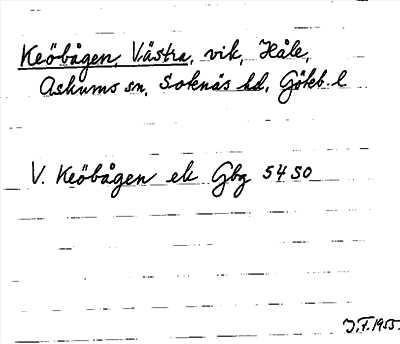 Keöbågen, Västra, vik, Håle,
Askums sn, Sotenäs hd, Göteb. l
V. Keöbågen ek Gbg 54 SO
J.F. 1955.